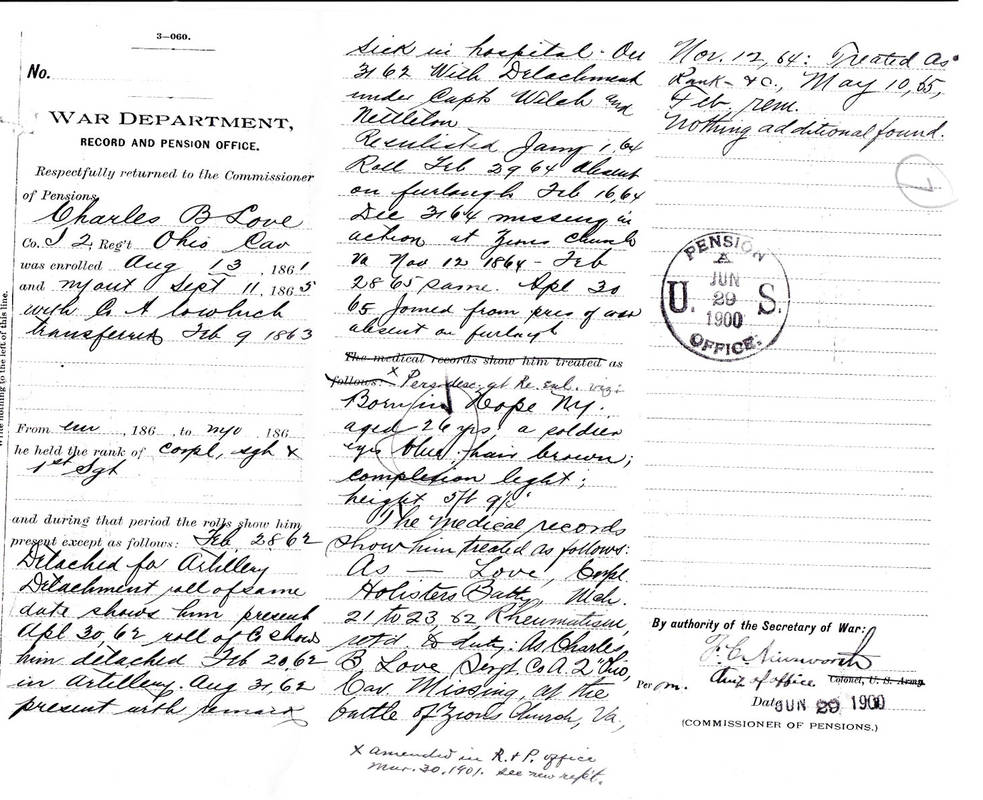 3—060.
No.
WAR DEPARTMENT,
RECORD AND PENSION OFFICE.
Respectfully returned to the Commissioner
of Pensions.
Charles B Love
Co. I 2, Reg't Ohio Cav
was enrolled Aug 13, 1861
and m o out Sept 11, 1865
with Co. A to which
transferred Feb 9 1863
From enr, 186 , to m o, 186
he held the rank of Corpl, Sgt &
1st Sgt
and during that period the rolls show him
present except as follows: Feb. 28 62
Detached for Artillery
Detachment roll of same
date shows him present
Apl 30, 62 roll of Co shows
him detached Feb 20, 62
in Artillery. Aug 31, 62
present with remark
Write nothing to the left of this line.
sick in hospital - Oct
31 62 With Detachment
under Capts Welch and
Nettleton
Reenlisted Jany 1, 64
Roll Feb 29 64 absent
on furlough Feb 16, 64
Dec 31 64 missing in
action at Zions Church
Va Nov 12 1864 - Feb
28 65 same. Apl 30
65 Joined from pris of war
absent on furlough
The medical records show him treated as
follows: x Pers. desc. at Re. enl. viz:
Born in Hope NY.
aged 26 yrs a soldier
eyes blue, hair brown;
complexion light;
height 5ft 9½"
The medical records
show him treated as follows:
As — Love, Corpl
Holisters Batty, Mch.
21 to 23, 62 Rheumatism,
retd. to duty. As Charles
B. Love Sergt. Co A. 2" Ohio,
Cav. Missing, at the
battle of Zions Church, Va.,
x amended in R. & P. office
Mar. 30, 1901. see new rept.
Nov. 12, 64: Treated As
Rank - &c., May 10, 65,
Feb. rem.
Nothing additional found.
PENSION
JUN
29
1900
U. S.
OFFICE.
By authority of the Secretary of War:
F. C. Ainsworth
Chief of office Colonel, U. S. Army
Per m.
Date JUN 29 1900
(COMMISSIONER OF PENSIONS.)